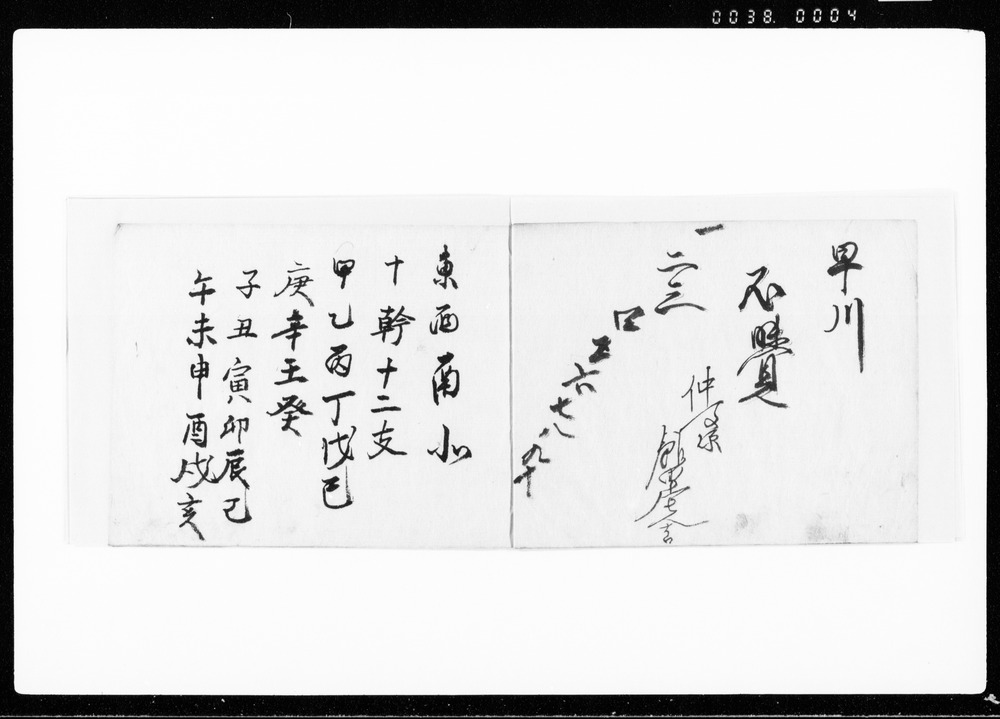 0038. 0004
早川
不覺
一
二三
口五六七八九十
仲
東西南北
十幹十二支
甲乙丙丁戊己
庚辛壬癸
子丑寅卯辰巳
午未申酉戌亥